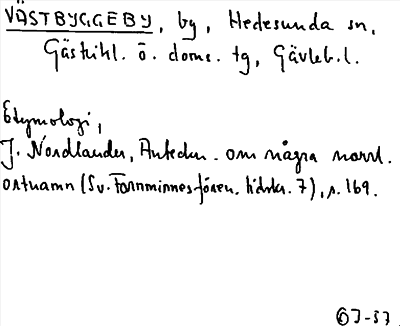 VÄSTBYGGEBY, by, Hedesunda sn,
Gästrikl. ö. doms. tg, Gävleb. l.
Etymologi,
J. Nordlander, Anteckn. om några norrl.
ortnamn (Sv. Fornminnesfören. tidskr. 7), s. 169.